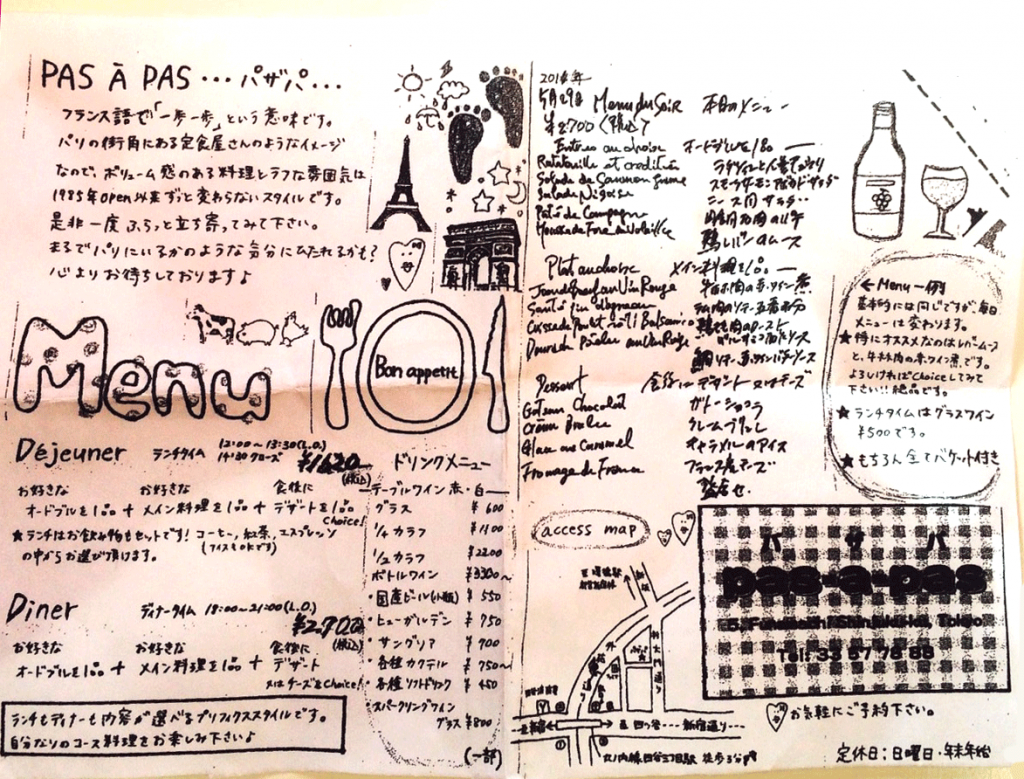 PAS À PAS … パザパ…
フランス語で「一歩一歩」という意味です。
パリの街角にある定食屋さんのようなイメージ
なので、ボリューム感のある料理とラフな雰囲気は
1985年open以来ずっと変わらないスタイルです。
是非一度ふらっと立ち寄ってみて下さい。
まるでパリにいるかのような気分にひたれるかも?
心よりお待ちしております♪
Menu
Bon appetit
Déjeuner ランチタイム 12:00~13:30(L.O.)
14:30クローズ ¥1620 (税込)
お好きな お好きな 食後に
オードブルを1品 + メイン料理を1品 + デザートを1品
Choice!
★ランチはお飲み物もセットです! コーヒー, 紅茶, エスプレッソ
(アイスもOKです)
の中からお選び頂けます。
Dîner ディナータイム 18:00~21:00(L.O.)
¥2,700 (税込)
お好きな お好きな 食後に
オードブルを1品 + メイン料理を1品 + デザート
又はチーズをChoice!
ランチもディナーも内容が選べるプリフィクススタイルです。
自分なりのコース料理をお楽しみ下さい♪
ドリンクメニュー
テーブルワイン 赤・白
グラス ¥600
1/4 カラフ ¥1100
1/2 カラフ ¥2200
ボトルワイン ¥3300~
・国産ビール(小瓶) ¥550
・ヒューガルデン ¥750
・サングリア ¥700
・各種カクテル ¥750~
・各種ソフトドリンク ¥450
・スパークリングワイン
グラス ¥800
(一部)
2014年
5月29日 Menu du Soir 本日のメニュー
¥2700 (税込)
Entrées au choix オードブルを1品
Salade Niçoise ニース風サラダ
Pâté de Campagne 田舎風お肉のパテ
鶏レバーのムース
Plat au choix メイン料理を1品
牛ホホ肉の赤ワイン煮
Dessert 食後にデザート又はチーズ
Gateau Chocolat ガトーショコラ
Crème Brulée クレームブリュレ
Glace au Caramel キャラメルのアイス
Fromage de France フランス産チーズ
← Menu 一例
基本的には同じですが、毎日
メニューは変わります。
★特にオススメなのはレバームース
と、牛ホホ肉の赤ワイン煮です。
よろしければchoiceしてみて
下さい!! 絶品です。
★ランチタイムはグラスワイン
¥500です。
★もちろん全てバゲット付き
access map
パ ザ パ
pas-a-pas
Tokyo
Tel: 33 57 78 88
新宿通り
丸ノ内線四谷三丁目駅 徒歩3分
お気軽にご予約下さい。
定休日:日曜日・年末年始